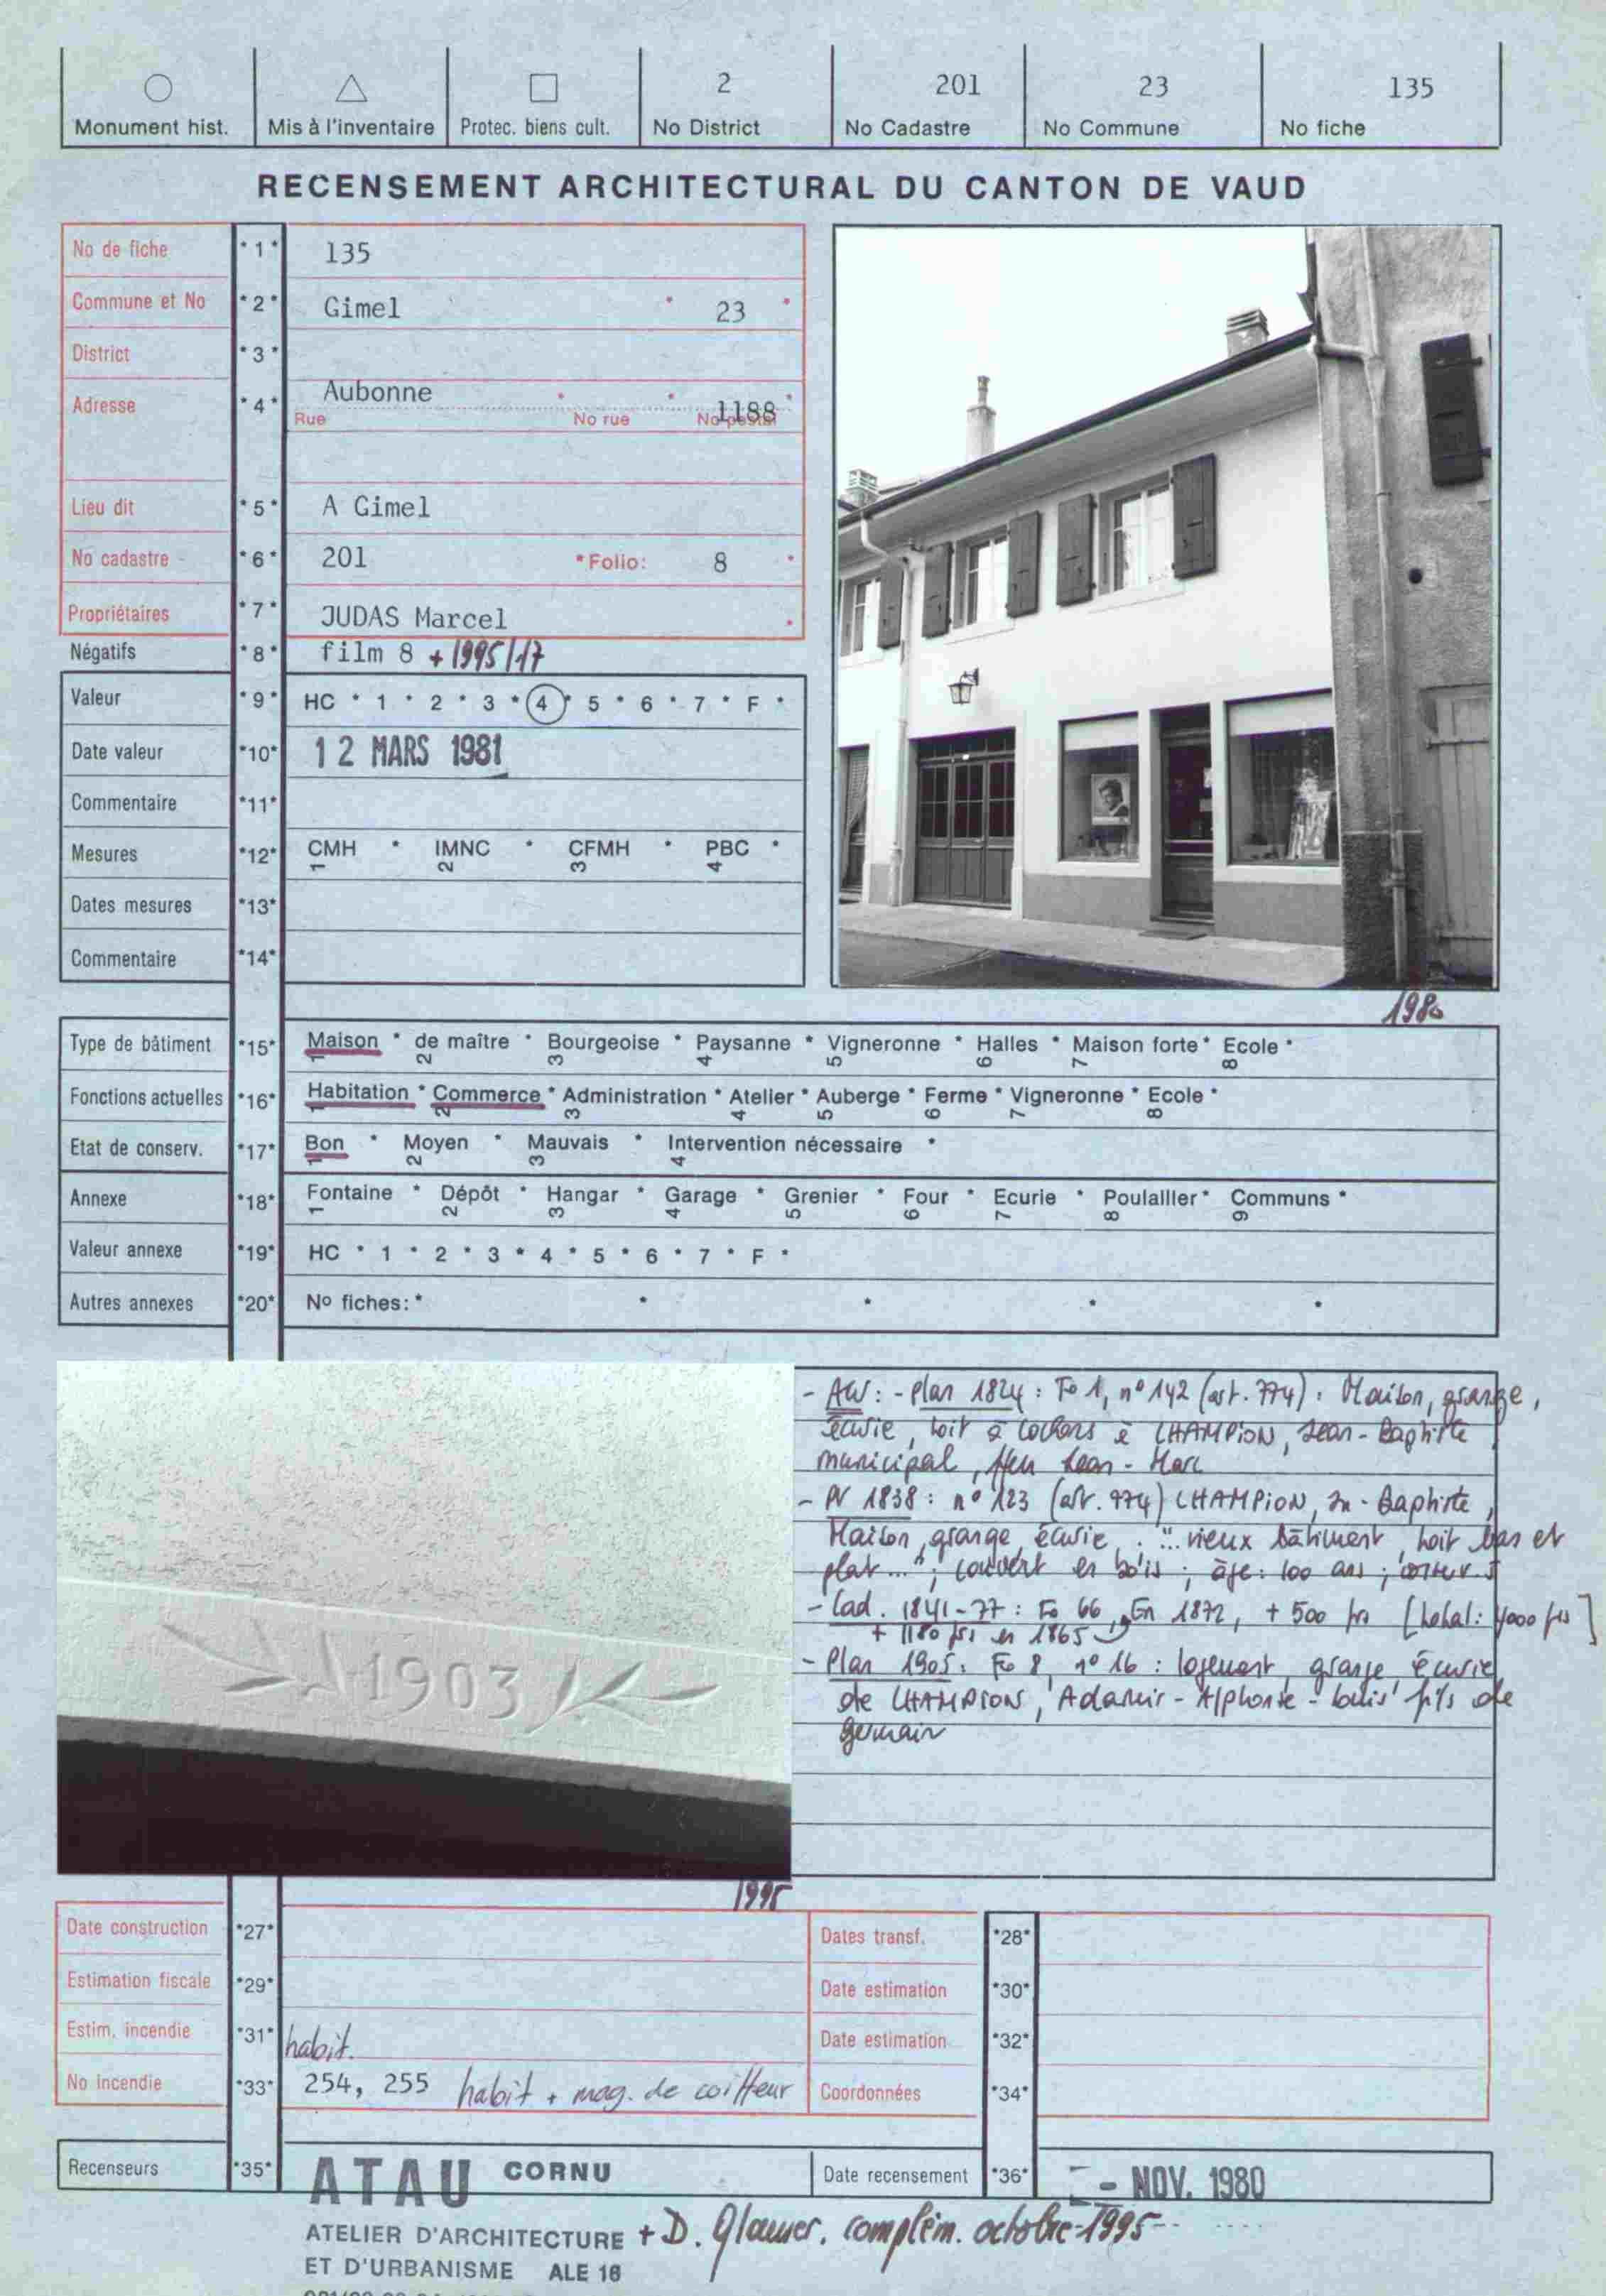 2 201 23 135
Monument hist. Mis à l'inventaire Protec. biens cult. No District No Cadastre No Commune No fiche
RECENSEMENT ARCHITECTURAL DU CANTON DE VAUD
No de fiche *1* 135
Commune et No *2* Gimel * 23 *
District *3*
Adresse *4* Aubonne * * 1188 *
Rue No rue No postal
Lieu dit *5* A Gimel
No cadastre *6* 201 *Folio: 8 *
Propriétaires *7* JUDAS Marcel *
Négatifs *8* film 8 + 1995/17
Valeur *9* HC * 1 * 2 * 3 * 4 * 5 * 6 * 7 * F *
Date valeur *10* 12 MARS 1981
Commentaire *11*
Mesures *12* CMH * IMNC * CFMH * PBC *
1 2 3 4
Dates mesures *13*
Commentaire *14*
1980
Type de bâtiment *15* Maison * de maître * Bourgeoise * Paysanne * Vigneronne * Halles * Maison forte * Ecole *
1 2 3 4 5 6 7 8
Fonctions actuelles *16* Habitation * Commerce * Administration * Atelier * Auberge * Ferme * Vigneronne * Ecole *
1 2 3 4 5 6 7 8
Etat de conserv. *17* Bon * Moyen * Mauvais * Intervention nécessaire *
1 2 3 4
Annexe *18* Fontaine * Dépôt * Hangar * Garage * Grenier * Four * Ecurie * Poulailler * Communs *
1 2 3 4 5 6 7 8 9
Valeur annexe *19* HC * 1 * 2 * 3 * 4 * 5 * 6 * 7 * F *
Autres annexes *20* No fiches: * * * * *
- : - Plan 1824 : Fo 1, n° 142 (art. 774) : Maison, grange,
écurie, toit à cochons à CHAMPION, Jean-Baptiste
municipal, ffeu Jean-Marc
- PV 1838 : n° 123 (art. 974) CHAMPION, Jn-Baptiste,
Maison, grange, écurie : "... vieux bâtiment, toit bas et
plat..." ; couvert en bois ; âge : 100 ans ;
- Cad. 1841-77 : Fo 66, En 1872, + 500 frs [total : 4000 frs]
+ 1180 frs en 1865
- Plan 1905 : Fo 8, n° 16 : logement, grange, écurie
de CHAMPION, -Alphonse-Louis fils de
Germain
1903
1995
Date construction *27* Dates transf. *28*
Estimation fiscale *29* Date estimation *30*
Estim. incendie *31* habit. Date estimation *32*
No incendie *33* 254, 255 habit + mag. de coiffeur Coordonnées *34*
Recenseurs *35* ATAU CORNU Date recensement *36* - NOV. 1980
ATELIER D'ARCHITECTURE + D. Glauser. complém. octobre 1995
ET D'URBANISME ALE 16